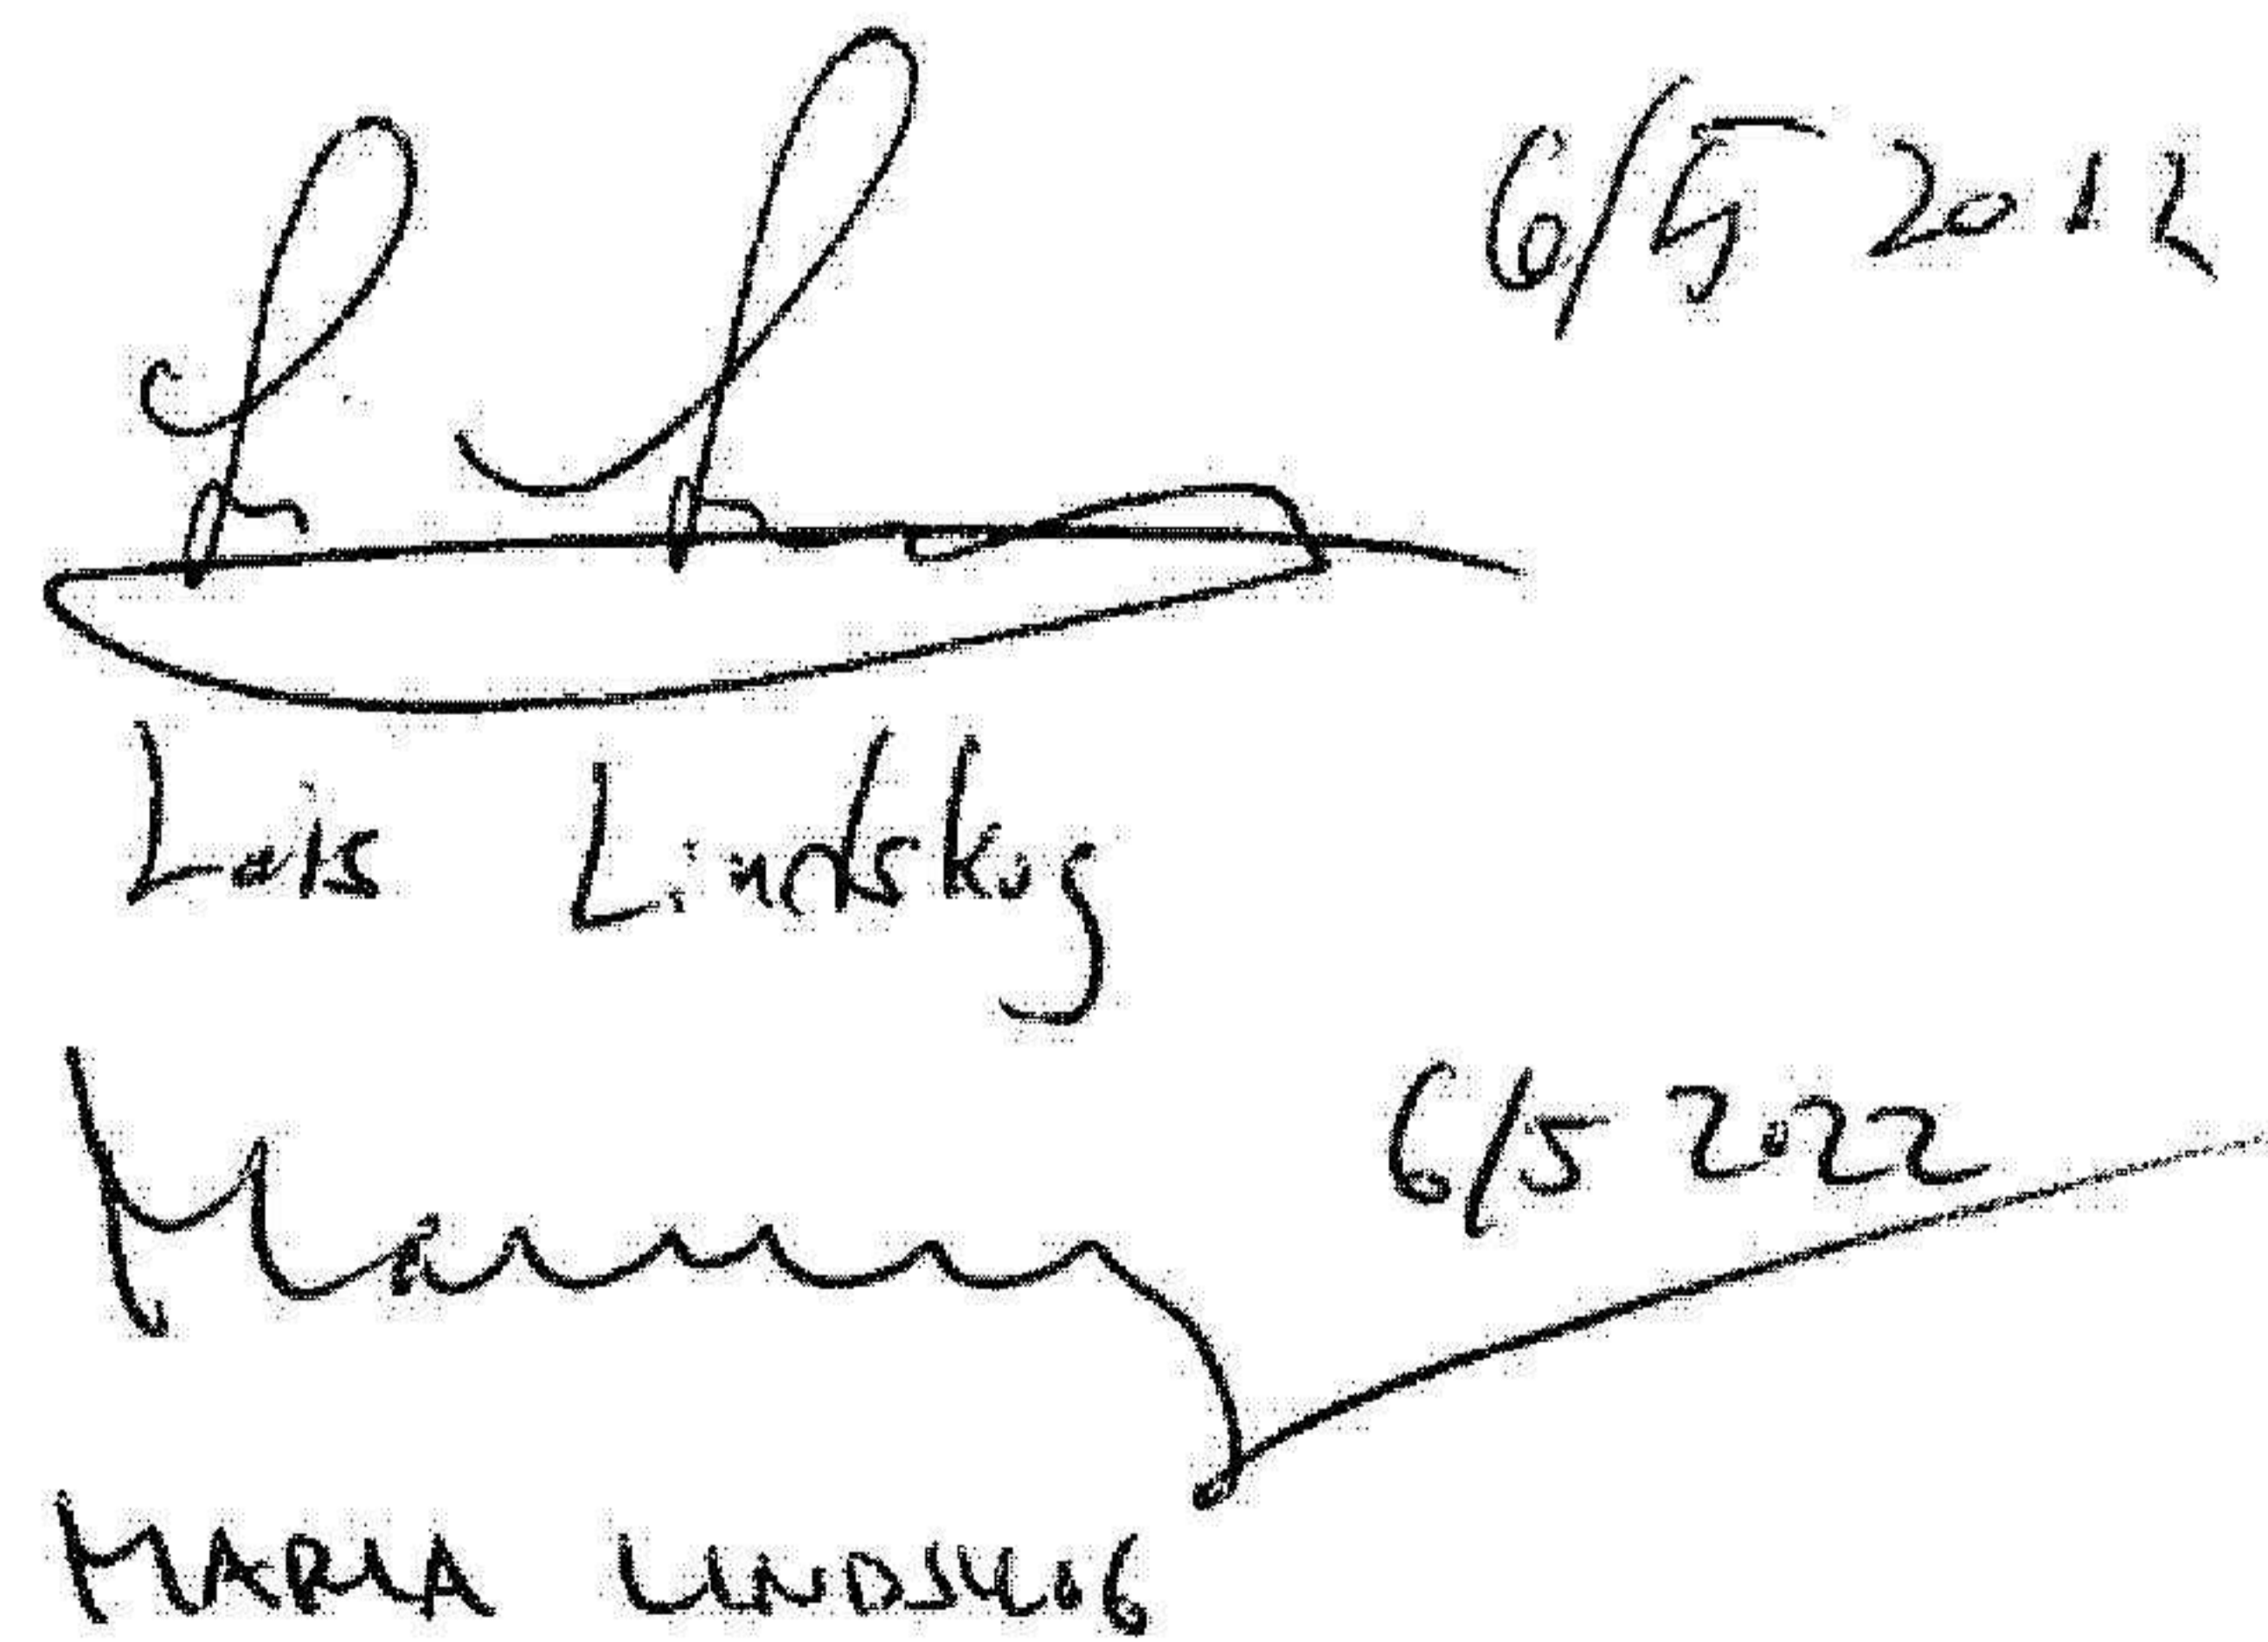 6/5 2012
Lars Lindskog
6/5 2022
MARIA LINDSKOG